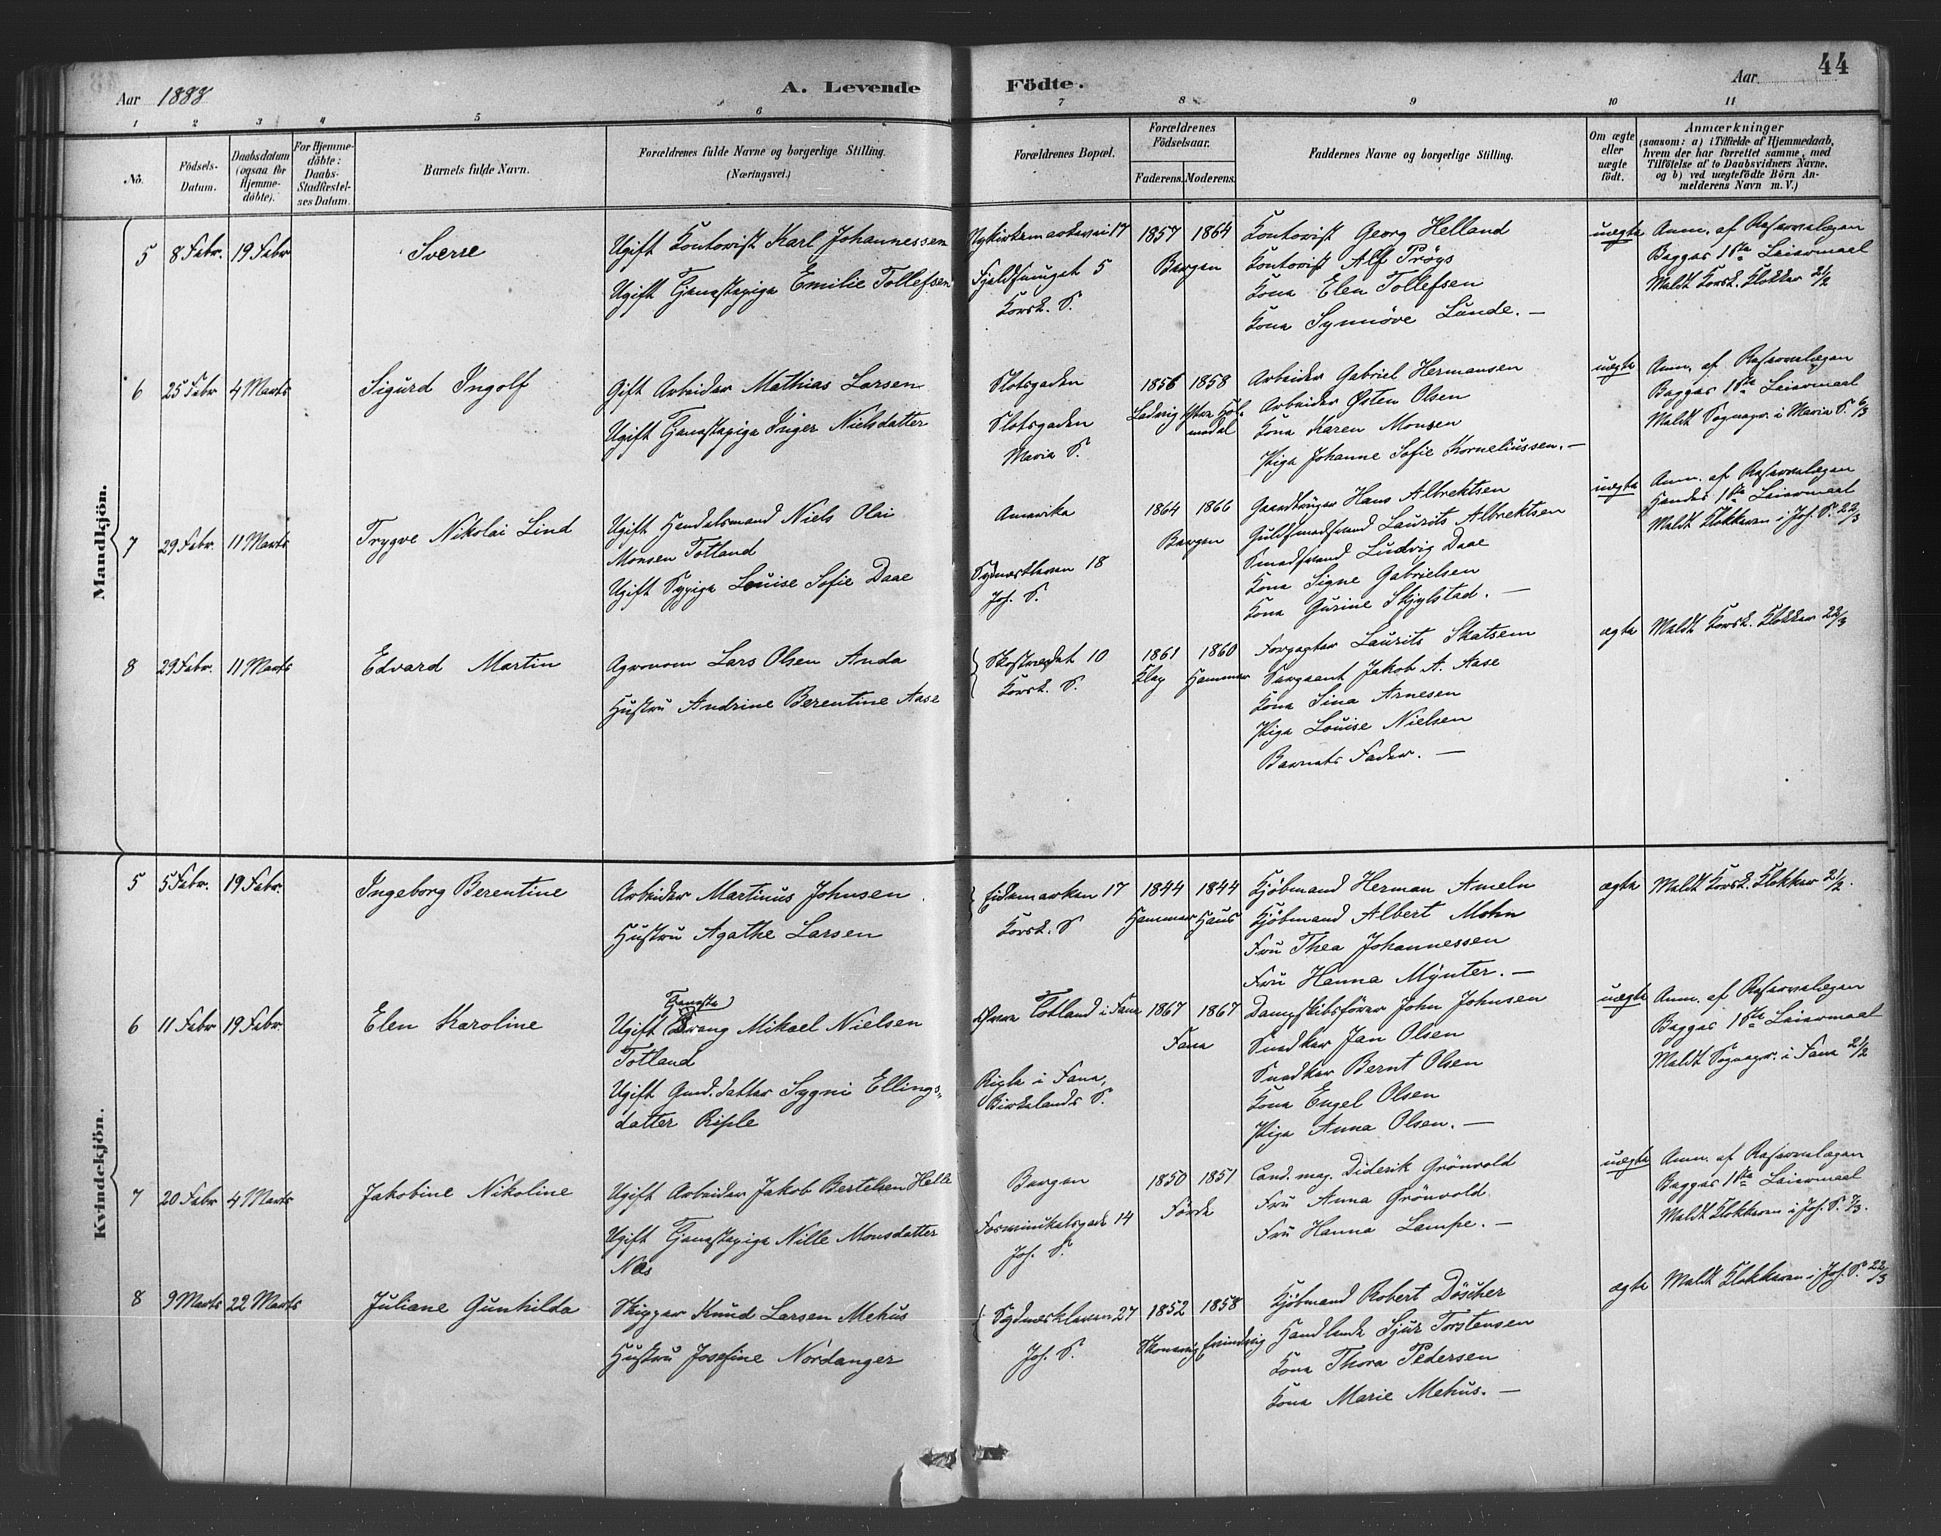 44
Aar 1888
A. Levende Födte.
Aar
1 2 3 4 5 6 7 8 9 10 11
No.
Födsels-Datum.
Daabsdatum (ogsaa for Hjemme-döbte).
For Hjemme-döbte: Daabs-Stadfæstel-ses Datum.
Barnets fulde Navn.
Forældrenes fulde Navne og borgerlige Stilling. (Næringsvei.)
Forældrenes Bopæl.
Forældrenes Födselsaar.
Faderens. Moderens.
Faddernes Navne og borgerlige Stilling.
Om ægte eller uægte födt.
Anmærkninger (saasom: a) i Tilfælde af Hjemmedaab, hvem der har forrettet samme, med Tilföielse af to Daabsvidners Navne. og b) ved uægtefödte Börn Anmelderens Navn m. V.)
Mandkjön.
5 8 Febr. 19 Febr
Sverre
Ugift Kontorist Karl Johannessen
Ugift Tjenestepige Emilie Tollefsen
Nykirkemarkevei 17
Fjeldsmuget 5
Korsk. S.
1857 1864
Bergen
Kontorist Georg Helland
Kontorist Alf Pröys
Kona Elen Tollefsen
Kona Synnöve Lunde. —
uegte
Anm. af Reservelægen
Begges 1ste Leiermaal
Meldt Korsk. Klokker 21/2
6 25 Febr 4 Marts
Sigurd Ingolf
Gift Arbeider Mathias Larsen
Ugift Tjenestepige Inger Nielsdatter
Slotsgaden
Slotsgaden
Maria S.
1856 1858
Ladvig Ytre Hol-
medal
Arbeider Gabriel Hermansen
Arbeider Østen Olsen
Kona Karen Monsen
Pige Johanne Sofie Korneliussen. —
uegte
Anm. af Reservelægen
Begges 1ste Leiermaal
Meldt Sognepr. i Maria S. 6/3
7 29 Febr. 11 Marts
Trygve Nikolai Lind
Ugift Handelsmand Niels Olai
Monsen Totland
Ugift Sypige Louise Sofie Daae
Amerika
Sydneskleven 18
Joh. S.
1864 1866
Bergen
Gaardbruger Hans Albrektsen
Guldsmedsvend Laurits Albrektsen
Smedsvend Ludvig Daae
Kona Signe Gabrielsen
Kona Gurine Skjylstad. —
uegte
Anm. af Reservelægen
Hendes 1ste Leiermaal
Meldt Klokkeren i Joh. S. 22/3
8 29 Febr. 11 Marts
Edvard Martin
Agronom Lars Olsen Anda
Hustru Andrine Berentine Aase
Skostrædet 10
Korsk. S.
1861 1860
Klep Hammer
Forpagter Laurits Skatsem
Sergeant Jakob A. Aase
Kona Sina Arnesen
Pige Louise Nielsen
Barnets Fader. —
ægte
Meldt Korsk. Klokker 22/3
Kvindekjön.
5 5 Febr. 19 Febr.
Ingeborg Berentine
Arbeider Martinus Johnsen
Hustru Agathe Larsen
Eidemarken 17
Korsk. S
1844 1844
Hammer Haus
Kjöbmand Herman Ameln
Kjöbmand Albert Mohn
Fru Thea Johannessen
Fru Hanna Mÿnter. —
ægte
Meldt Korsk. Klokker 21/2.
6 11 Febr 19 Febr.
Elen Karoline
Tjeneste
Ugift Dreng Mikael Nielsen
Totland
Ugift Gmd. datter Sygni Ellings-
datter Riple
Totland i Fana
Riple i Fana,
Birkelands S.
1867 1867
Fana
Dampskibsförer John Johnsen
Snedker Jan Olsen
Snedker Bernt Olsen
Kona Engel Olsen
Pige Anna Olsen. —
uægte
Anm. af Reservelægen
Begges 1ste Leiermaal
Meldt Sognepr. i Fana 21/2
7 20 Febr 4 Marts
Jakobine Nikoline
Ugift Arbeider Jakob Bertelsen Helle
Ugift Tjenestepige Nille Monsdatter
Nes
Bergen
14
Joh. S.
1850 1851
Förde
Cand. mag. Diderik Grönvold
Fru Anna Grönvold
Fru Hanna Lampe. —
uægte
Anm. af Reservelægen
Begges 1ste Leiermaal
Meldt Klokkeren i Joh. S. 7/3.
8 9 Marts 22 Marts
Juliane Gunhilda
Skipper Knud Larsen Mehus
Hustru Josefine Nordanger
Sydneskleven 27
Joh. S.
1852 1858
Skonevig Evindvig
Kjöbmand Robert Döscher
Handlende Sjur Torstensen
Kona Thora Pedersen
Kona Marie Mehus. —
ægte
Meldt Klokkeren i Joh. S. 22/3